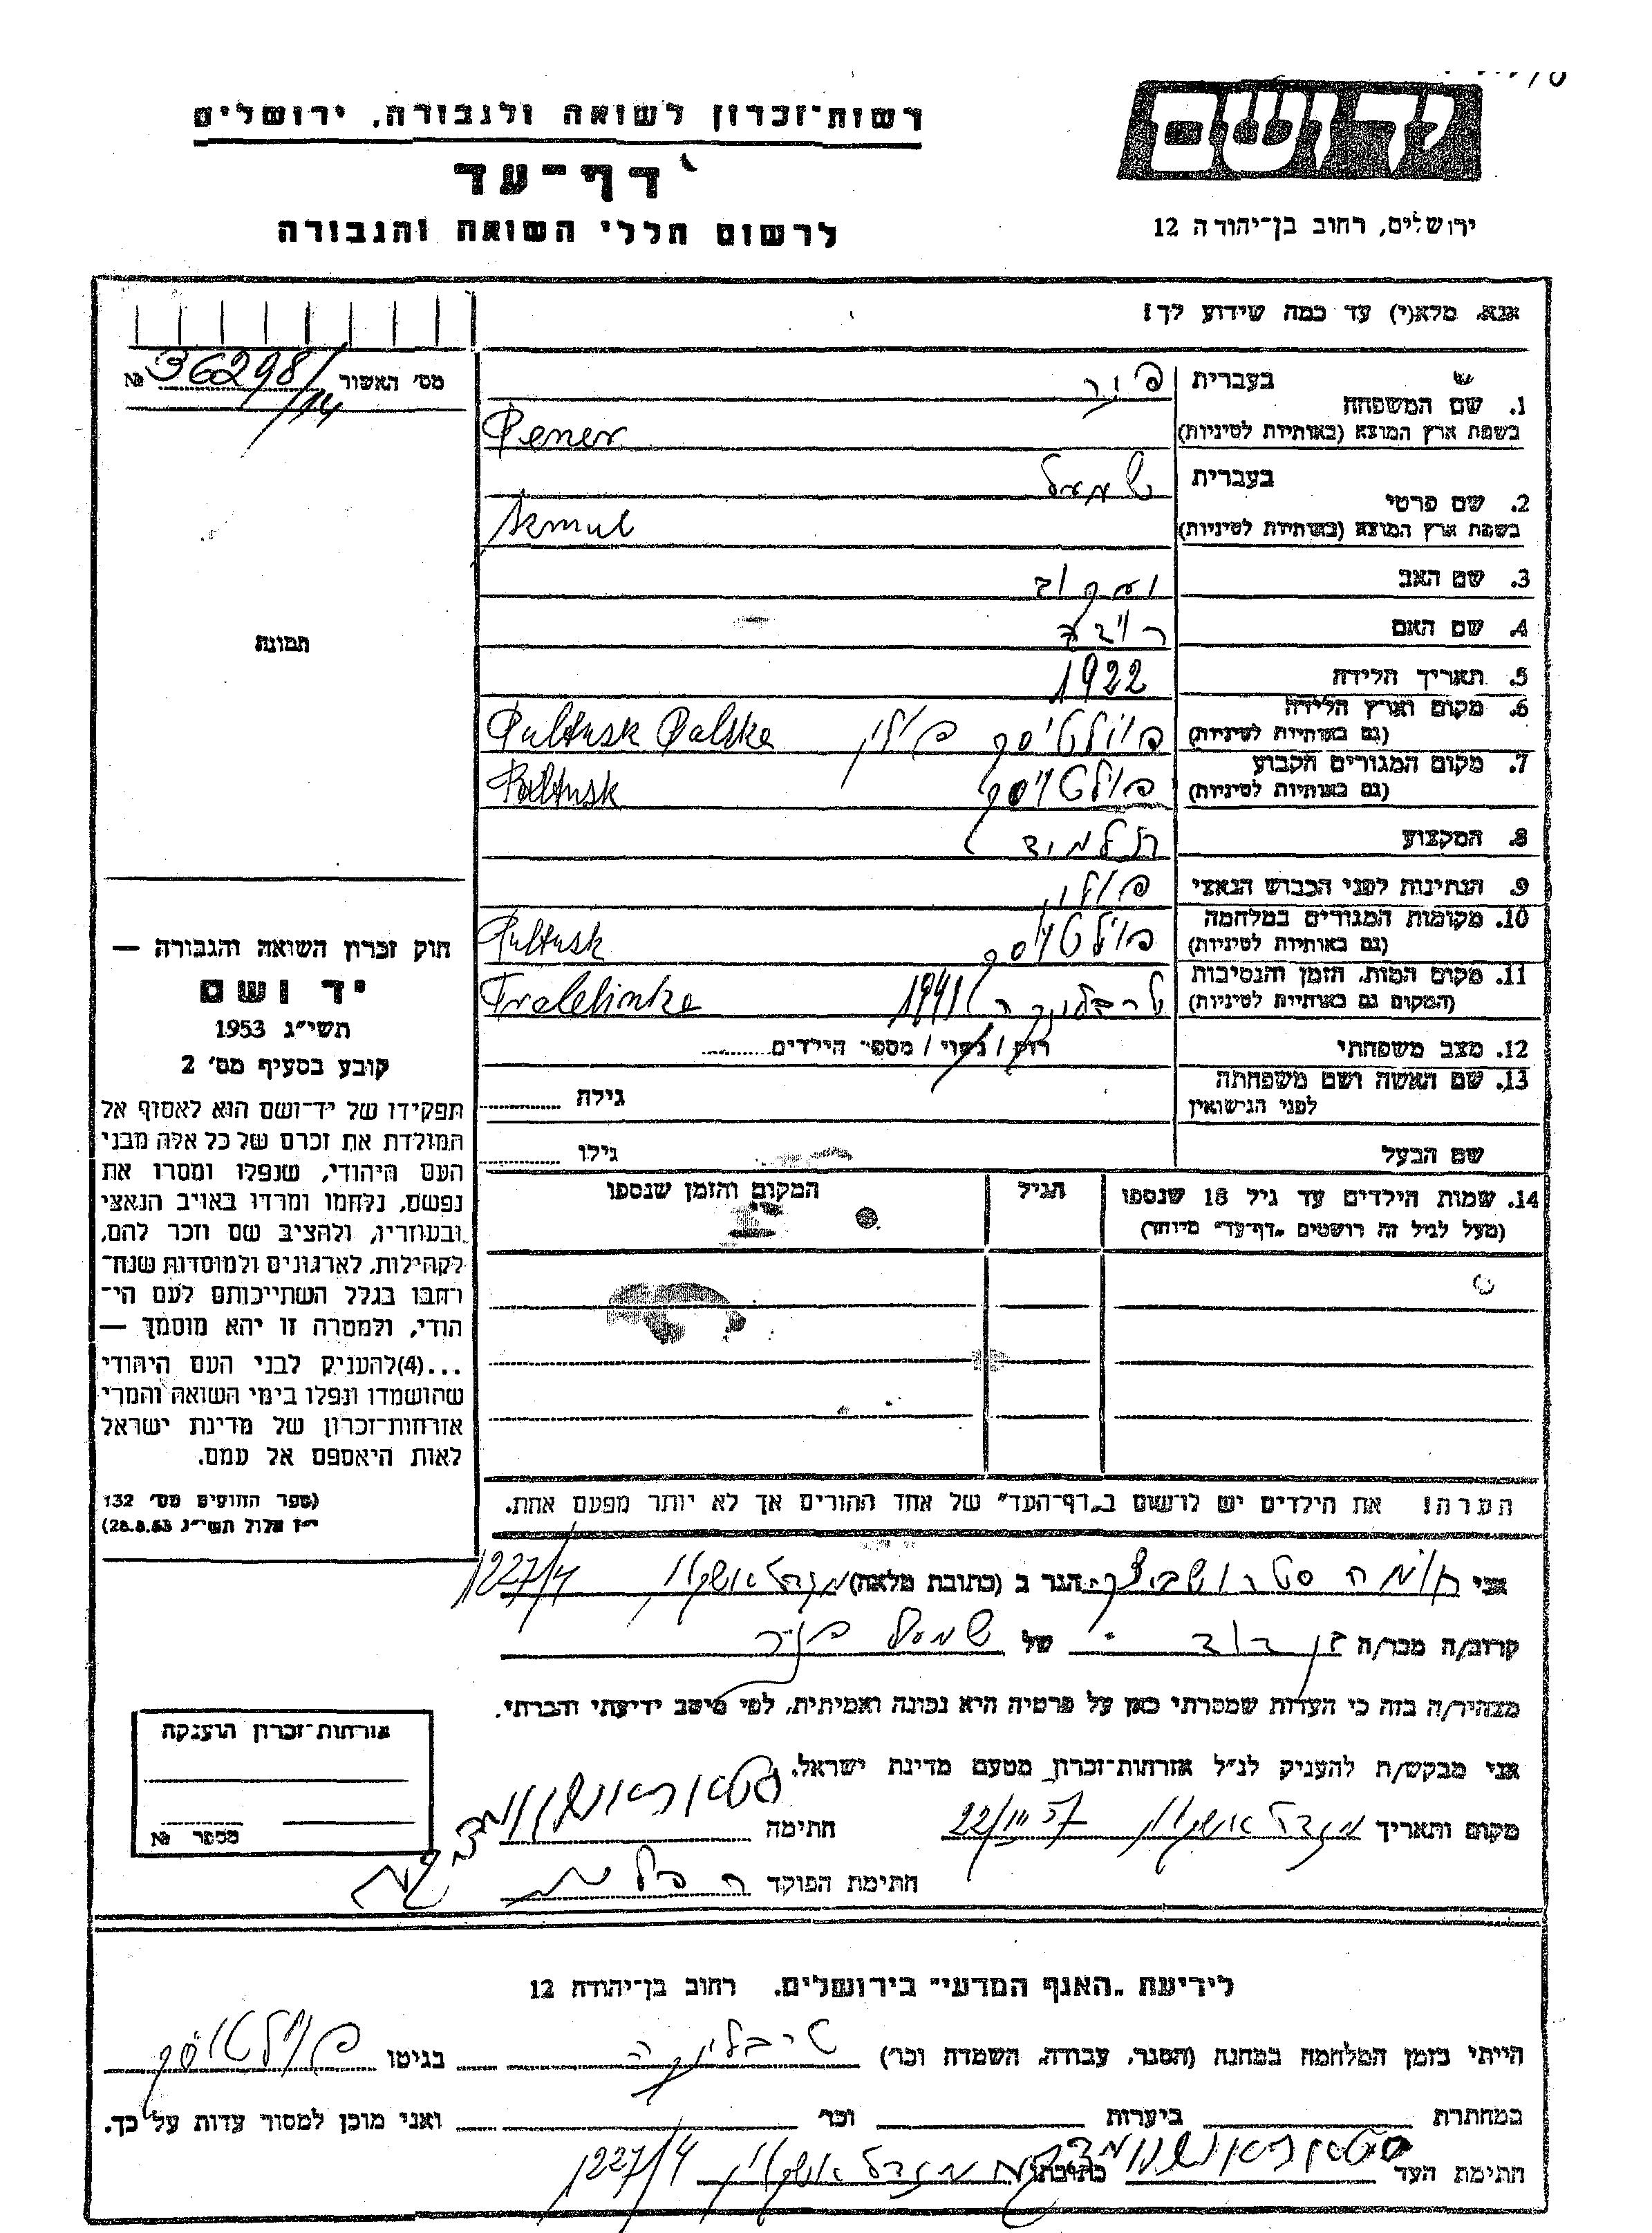 רשות-זכרון לשואה ולגבורה, ירושלים
דף-עד
לרשום חללי השואה והגבורה
ידושם
ירושלים, רחוב בן-יהודה 12
אנא, מלא(י) עד כמה שידוע לך!
מס' האשור 36298/14 №
1. שם המשפחה
בעברית פנר
בשפת ארץ המוצא (באותיות לטיניות) Pener
2. שם פרטי
בעברית שמואל
בשפת ארץ המוצא (באותיות לטיניות) Szmul
3. שם האב יעקוב
4. שם האם ריבה
5. תאריך הלידה 1922
6. מקום וארץ הלידה
(גם באותיות לטיניות) פולטוסק פולין Pultusk Polska
7. מקום המגורים הקבוע
(גם באותיות לטיניות) פולטוסק Pultusk
8. המקצוע תלמיד
9. הנתינות לפני הכבוש הנאצי פולין
10. מקומות המגורים במלחמה
(גם באותיות לטיניות) פולטוסק Pultusk
11. מקום המות, הזמן והנסיבות
(המקום גם באותיות לטיניות) טרבלינקה 1941 Treblinka
12. מצב משפחתי רווק / נשוי / מספר הילדים
13. שם האשה ושם משפחתה
לפני הנישואין גילה
שם הבעל גילו
14. שמות הילדים עד גיל 18 שנספו הגיל המקום והזמן שנספו
(מעל לגיל זה רושמים „דף-עד" מיוחד)
הערה! את הילדים יש לרשום ב„דף-העד" של אחד ההורים אך לא יותר מפעם אחת.
תמונה
חוק זכרון השואה והגבורה —
יד ושם
תשי"ג 1953
קובע בסעיף מס' 2
תפקידו של יד-ושם הוא לאסוף אל
המולדת את זכרם של כל אלה מבני
העם היהודי, שנפלו ומסרו את
נפשם, נלחמו ומרדו באויב הנאצי
ובעוזריו, ולהציב שם וזכר להם,
לקהילות, לארגונים ולמוסדות שנח-
רבו בגלל השתייכותם לעם הי-
הודי, ולמטרה זו יהא מוסמך —
...(4)להעניק לבני העם היהודי
שהושמדו ונפלו בימי השואה והמרי
אזרחות-זכרון של מדינת ישראל
לאות היאספם אל עמם.
(ספר החוקים מס' 132
י"ז אלול תשי"ג 28.8.53)
אני הגר ב (כתובת מלאה) מגדל אשקלון 1227/4
קרוב/ה מכר/ה בן דוד של שמואל פנר
מצהיר/ה בזה כי העדות שמסרתי כאן על פרטיה היא נכונה ואמיתית, לפי מיטב ידיעתי והכרתי.
אני מבקש/ת להעניק לנ"ל אזרחות-זכרון מטעם מדינת ישראל.
מקום ותאריך מגדל אשקלון 22/III 57 חתימה
חתימת הפוקד
אזרחות-זכרון הוענקה
מספר №
לידיעת „האגף המדעי" בירושלים, רחוב בן-יהודה 12
הייתי בזמן המלחמה במחנה (הסגר, עבודה, השמדה וכו') טריבלינקה בגיטו פולטוסק
במחתרת ביערות וכו' ואני מוכן למסור עדות על כך.
חתימת העד כתובתו מגדל אשקלון 1227/4